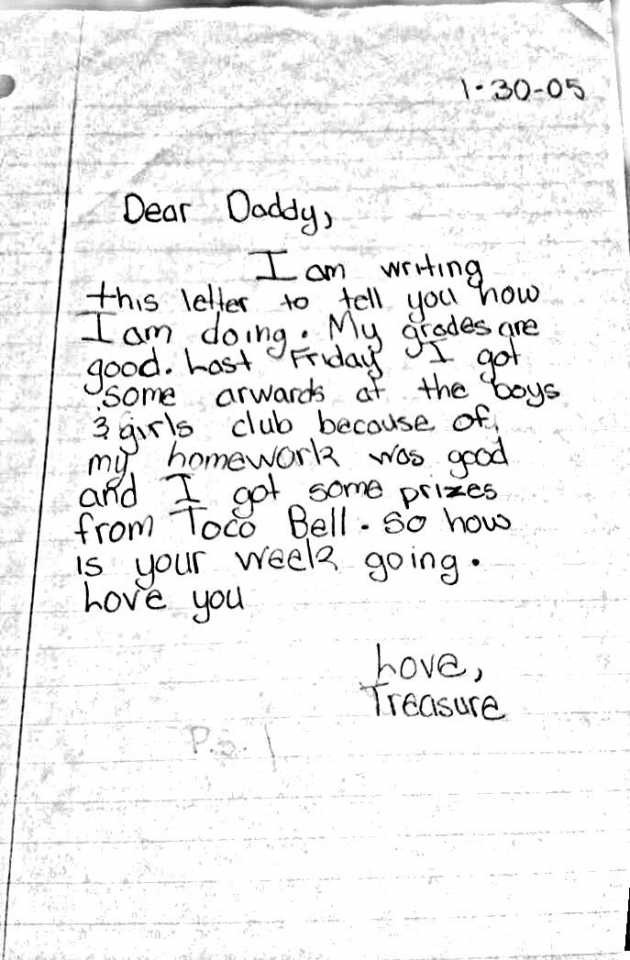 1-30-05
Dear Daddy,
I am writing
this letter to tell you how
I am doing. My grades are
good. Last Friday I got
some arwards at the boys
& girls club because of
my homework was good
and I got some prizes
from Taco Bell. So how
is your week going.
Love you
Love,
Treasure
P.S. I